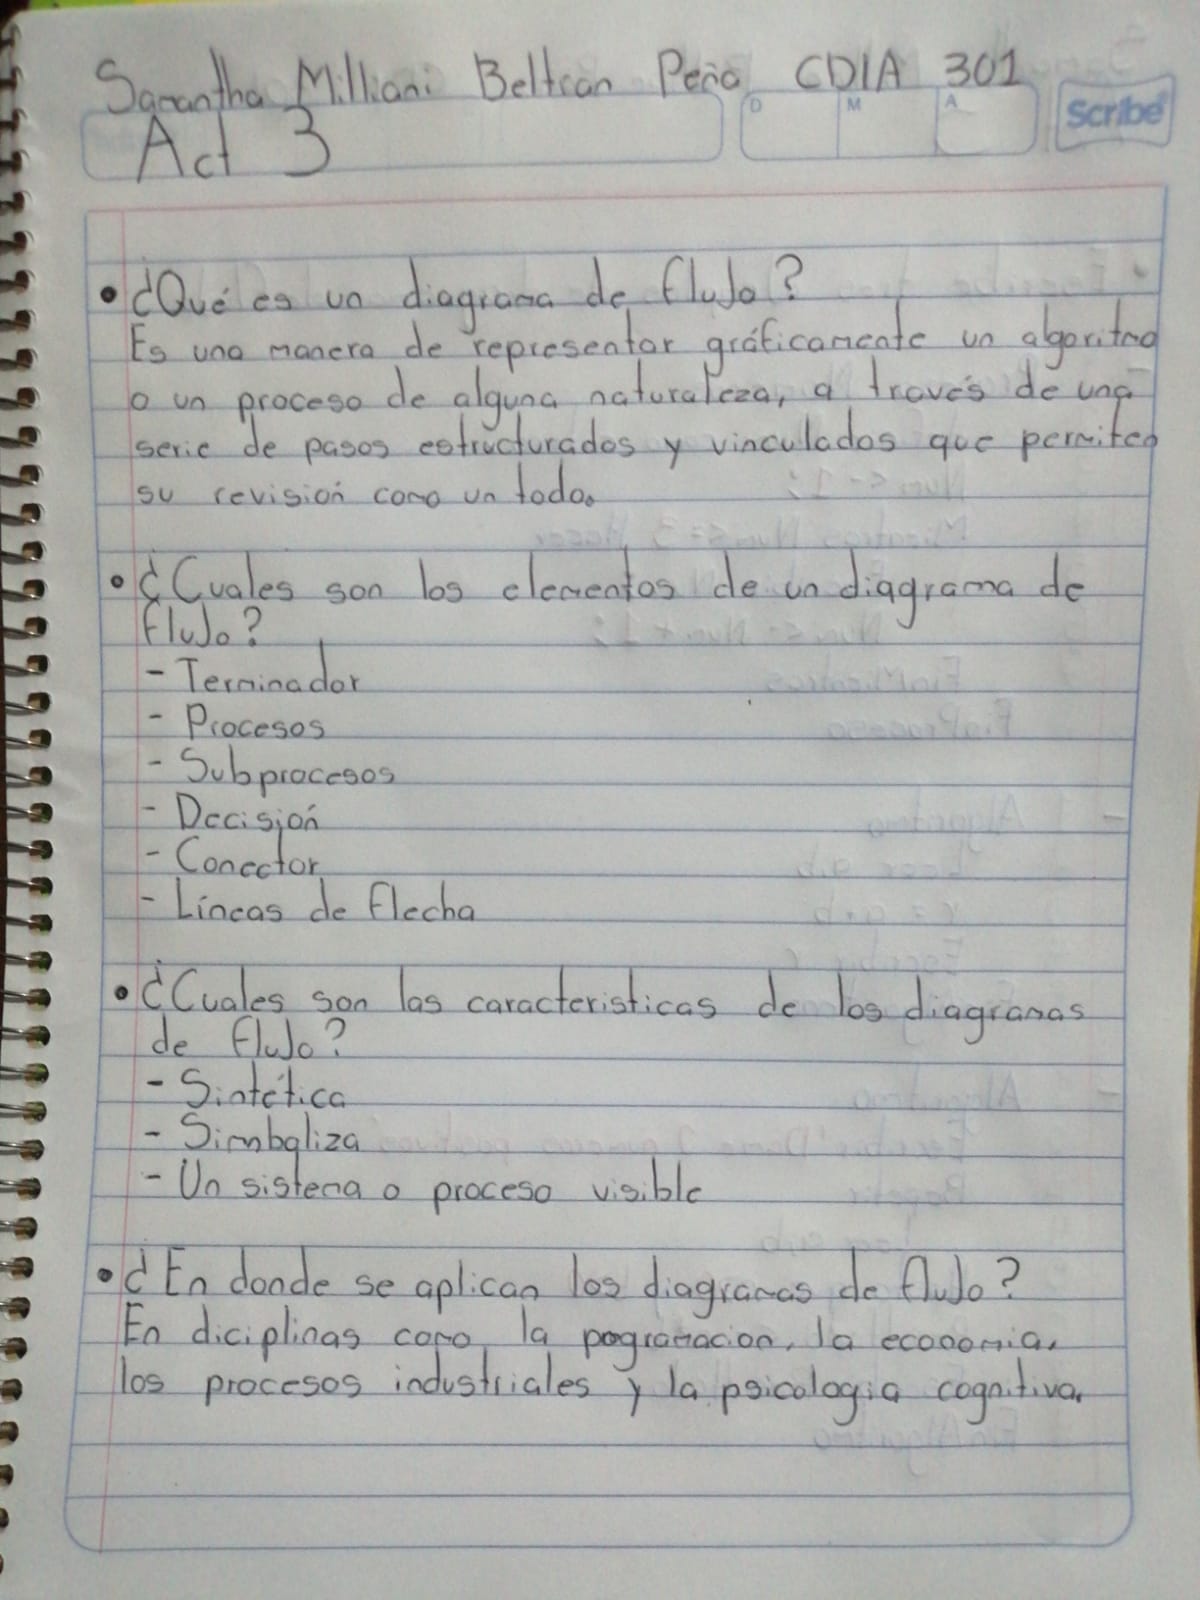 Samantha Milliani Beltran Peña CDIA 301
Act 3
D M A
Scribe
• ¿Qué es un diagrama de flujo?
Es una manera de representar gráficamente un algoritmo
o un proceso de alguna naturaleza, a través de una
serie de pasos estructurados y vinculados que permiten
su revisión como un todo.
• ¿Cuales son los elementos de un diagrama de
flujo?
- Terminador
- Procesos
- Subprocesos
- Decisión
- Conector
- Líneas de flecha
• ¿Cuales son las caracteristicas de los diagramas
de flujo?
- Sintética
- Simboliza
- Un sistema o proceso visible
• ¿En donde se aplican los diagramas de flujo?
En diciplinas como la pogramacion, la economia,
los procesos industriales y la psicologia cognitiva.